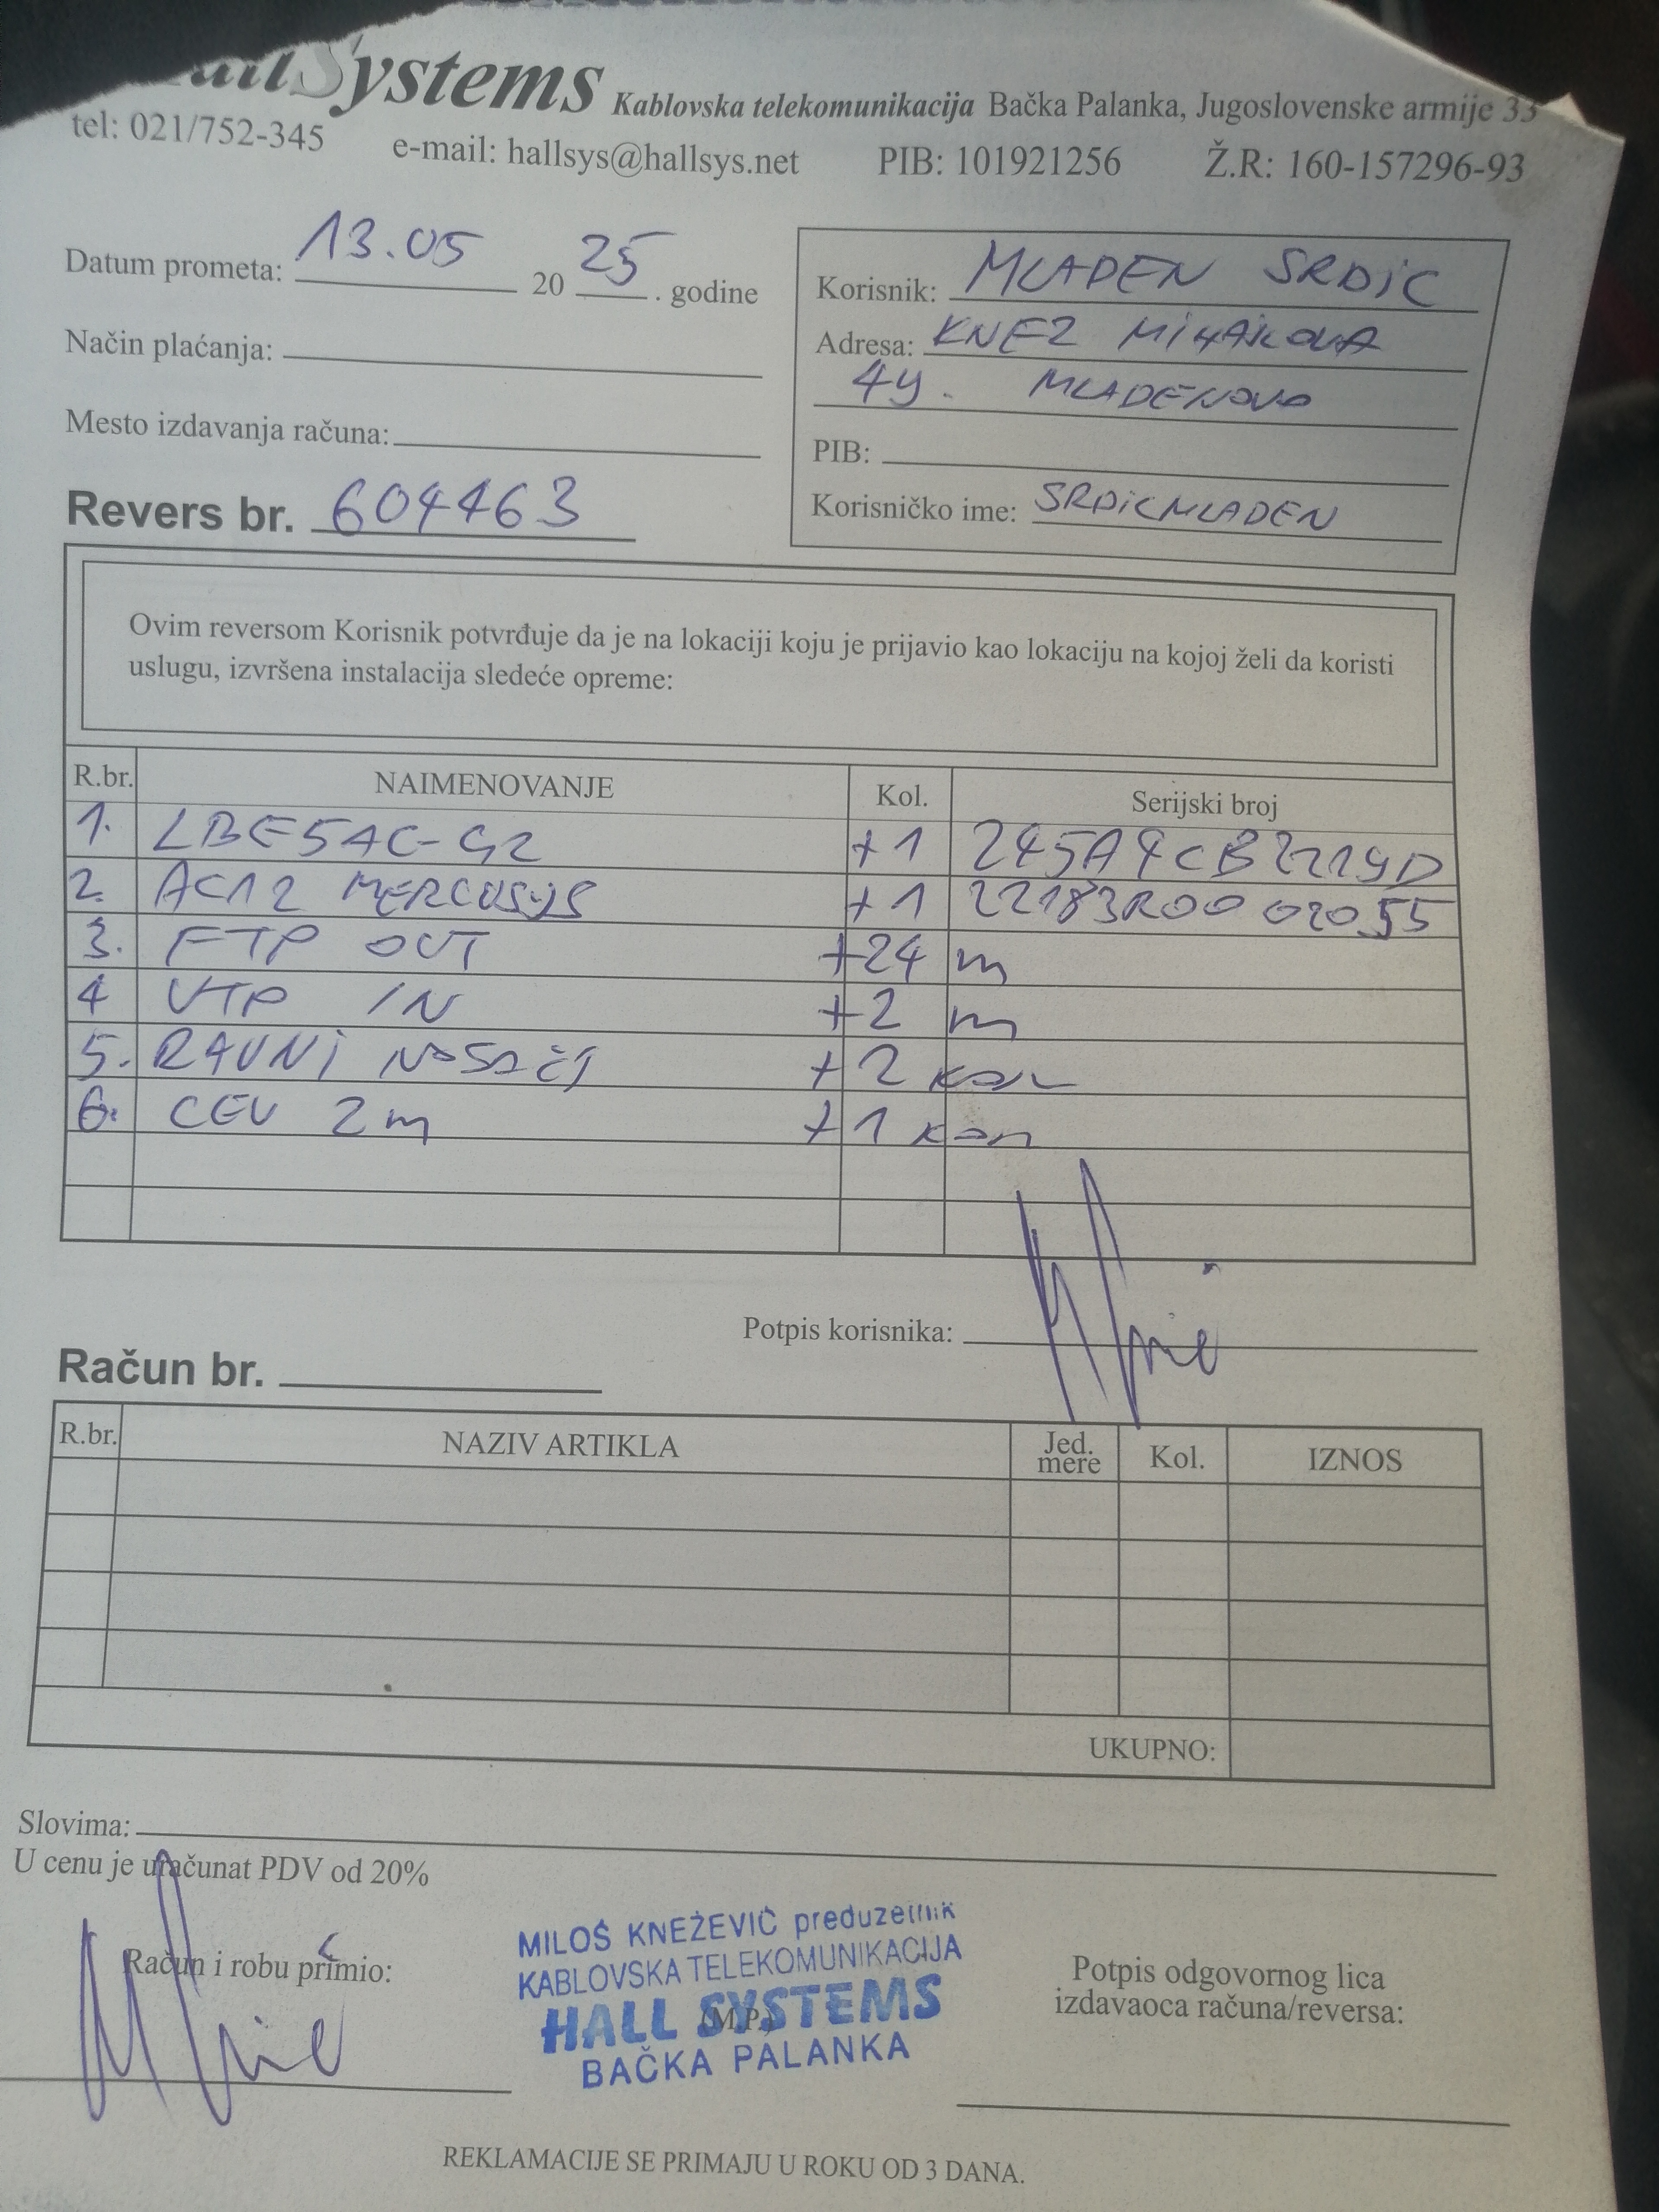 HallSystems Kablovska telekomunikacija Bačka Palanka, Jugoslovenske armije 33
tel: 021/752-345 e-mail: hallsys@hallsys.net PIB: 101921256 Ž.R: 160-157296-93
Datum prometa: 13.05 20 25 . godine
Način plaćanja:
Mesto izdavanja računa:
Revers br. 604463
Korisnik: MLADEN SRDIC
Adresa: KNEZ MIHAJLOVA
49. MLADENOVO
PIB:
Korisničko ime: SRDICMLADEN
Ovim reversom Korisnik potvrđuje da je na lokaciji koju je prijavio kao lokaciju na kojoj želi da koristi
uslugu, izvršena instalacija sledeće opreme:
R.br. NAIMENOVANJE Kol. Serijski broj
1. LBE5AC-G2 +1 245A4CB2219D
2. AC12 MERCUSYS +1 22183R0002055
3. FTP OUT +24 m
4 UTP IN +2 m
5. RAVNI NOSAČI +2 kom
6. CEV 2m +1 kom
Potpis korisnika:
Račun br.
R.br. NAZIV ARTIKLA Jed. mere Kol. IZNOS
UKUPNO:
Slovima:
U cenu je uračunat PDV od 20%
Račun i robu primio:
MILOŠ KNEŽEVIĆ preduzetnik
KABLOVSKA TELEKOMUNIKACIJA
HALL SYSTEMS
(M.P.)
BAČKA PALANKA
Potpis odgovornog lica
izdavaoca računa/reversa:
REKLAMACIJE SE PRIMAJU U ROKU OD 3 DANA.